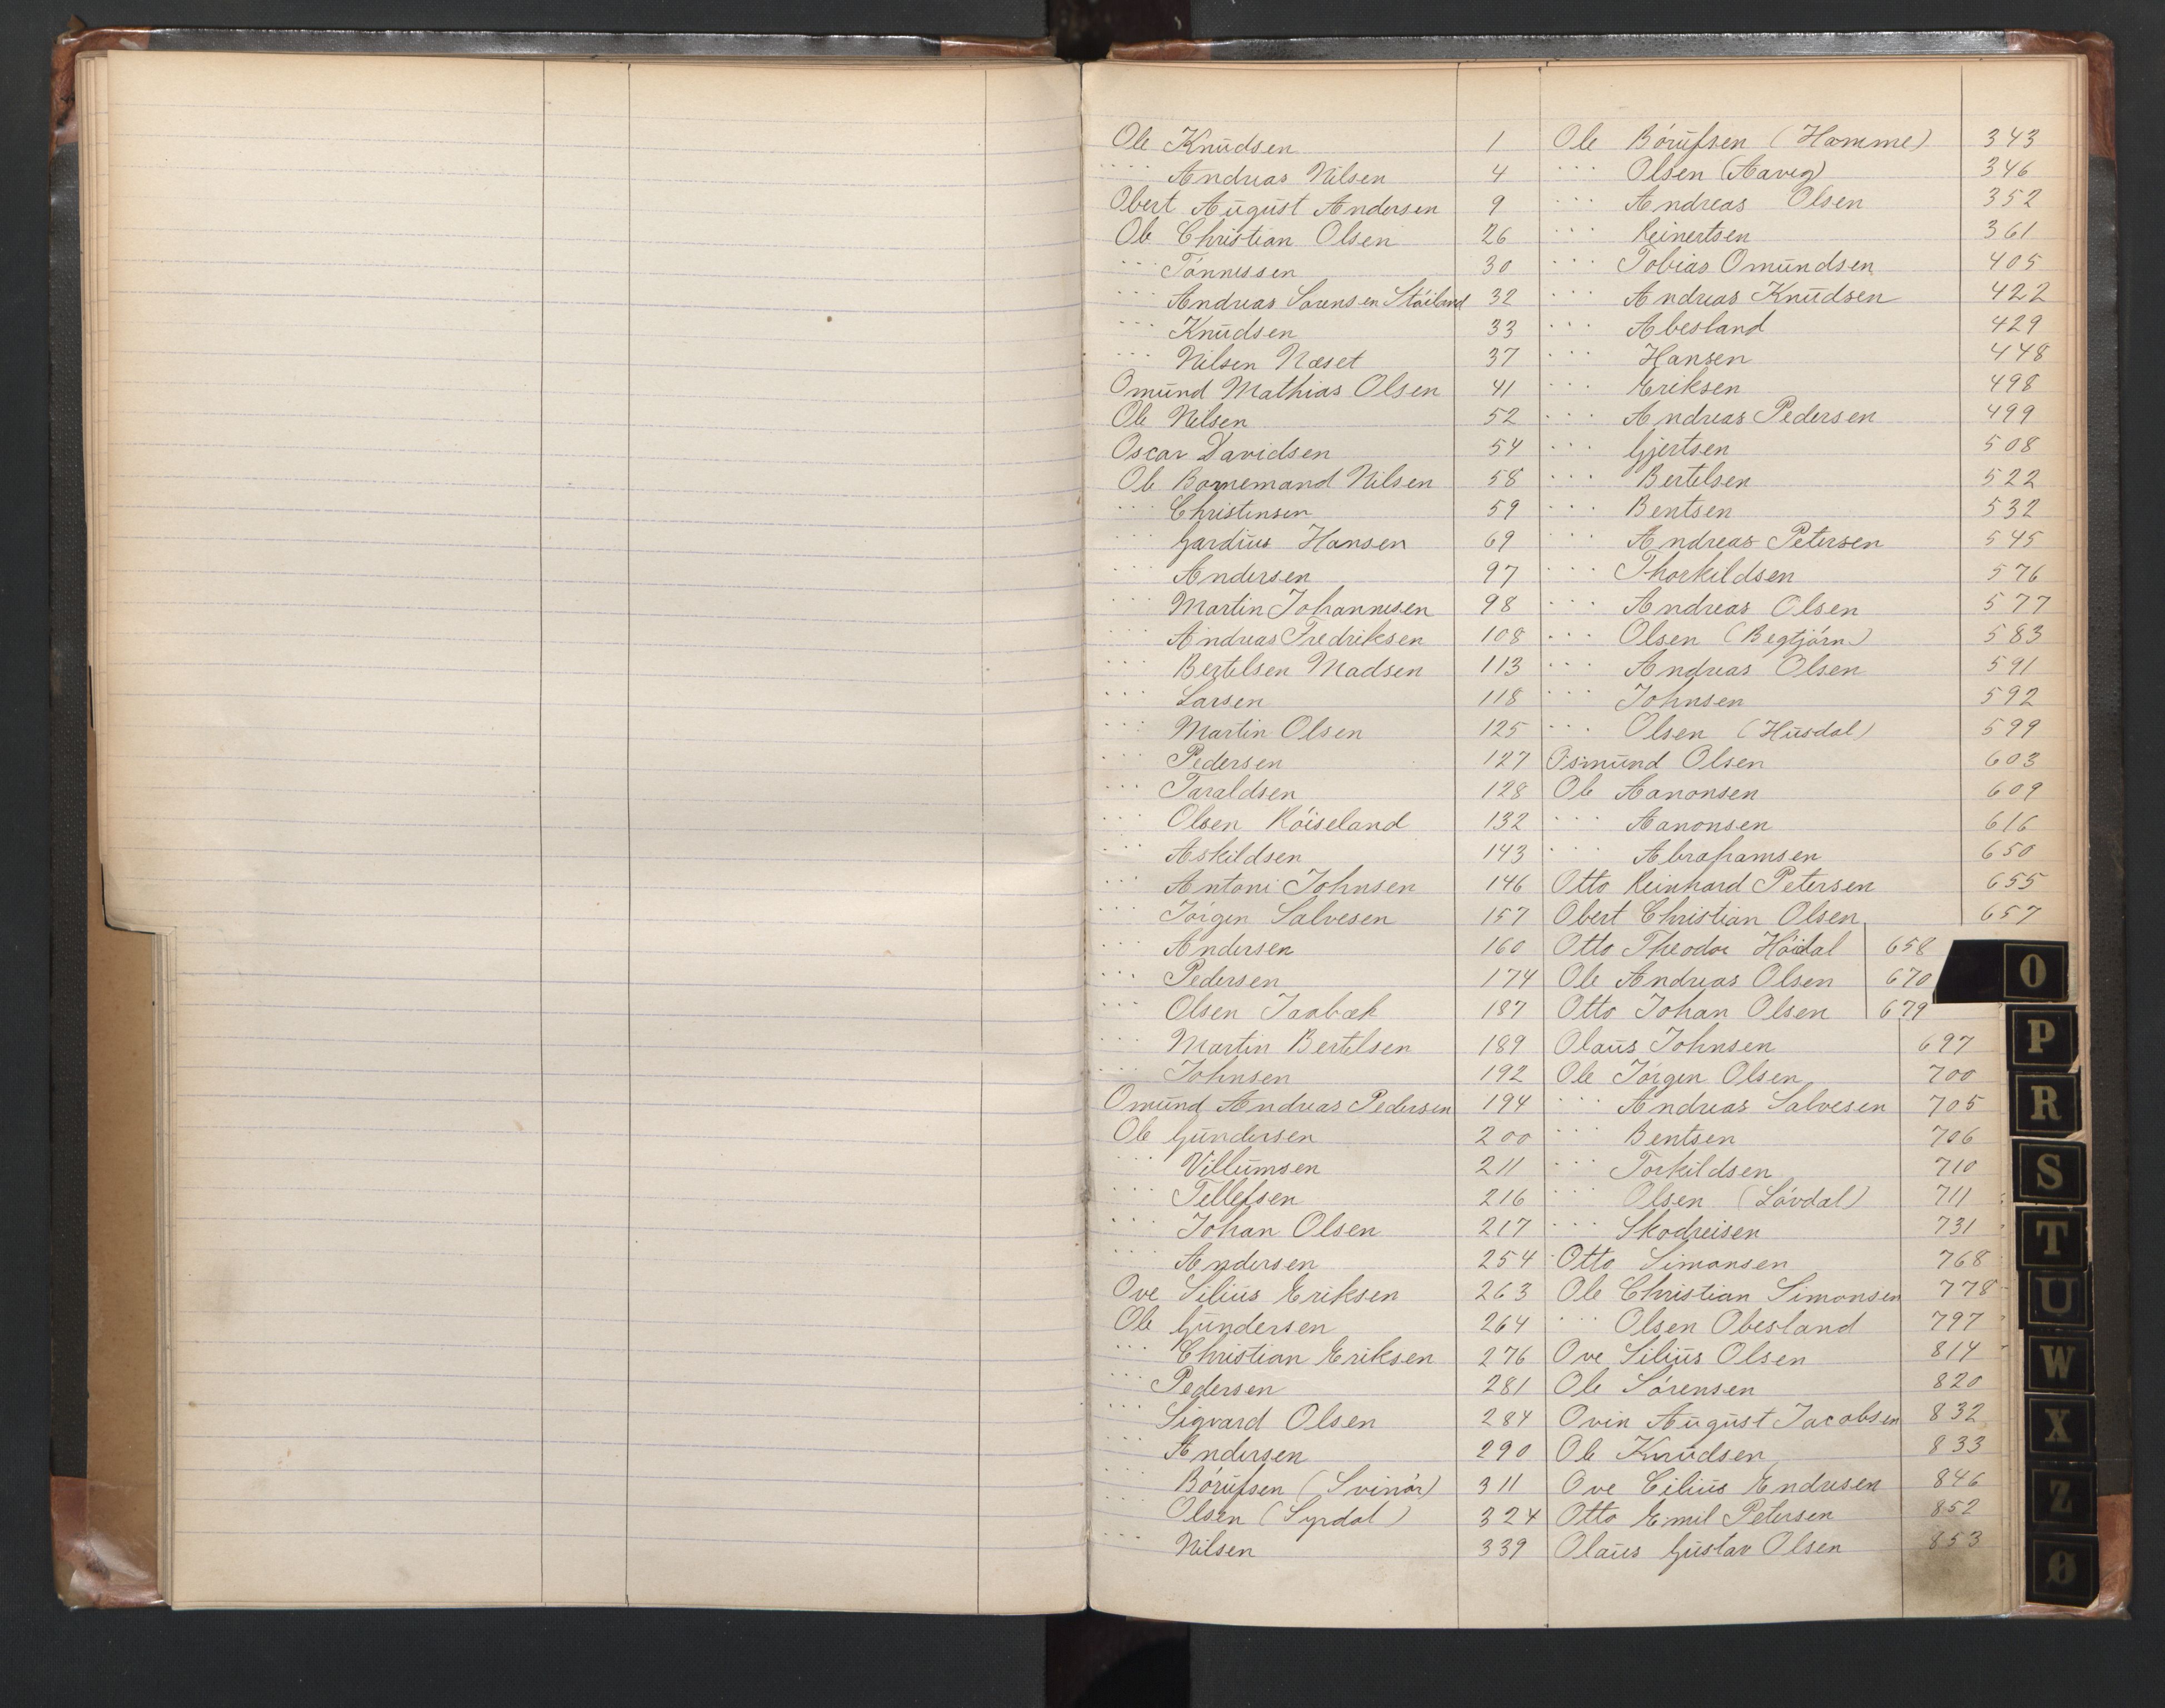 Ole Knudsen 1
" Andreas Nilsen 4
Obert August Andersen 9
Ole Christian Olsen 26
" Tönnessen 30
" Andreas Sörensen Stöiland 32
" Knudsen 33
" Nilsen Næset 37
Omund Mathias Olsen 41
Ole Nilsen 52
Oscar Davidsen 54
Ole Bornemand Nilsen 58
" Christensen 59
" Gardius Hansen 69
" Andersen 97
" Martin Johannesen 98
" Andreas Fredriksen 108
" Bertelsen Madsen 113
" Larsen 118
" Martin Olsen 125
" Pedersen 127
" Taraldsen 128
" Olsen Röiseland 132
" Askildsen 143
" Antoni Johnsen 146
" Jörgen Salvesen 157
" Andersen 160
" Pedersen 174
" Olsen Jaabæk 187
" Martin Bertelsen 189
" Johnsen 192
Omund Andreas Pedersen 194
Ole Gundersen 200
" Villumsen 211
" Tellefsen 216
" Johan Olsen 217
" Andersen 254
Ove Silius Eriksen 263
Ole Gundersen 264
" Christian Eriksen 276
" Pedersen 281
" Sigvard Olsen 284
" Andersen 290
" Börufsen (Svinör) 311
" Olsen (Syrdal) 324
" Nilsen 339
Ole Börufsen (Homme) 343
" Olsen (Aavig) 346
" Andreas Olsen 352
" Reinertsen 361
" Tobias Omundsen 405
" Andreas Knudsen 422
" Abesland 429
" Hansen 448
" Eriksen 498
" Andreas Pedersen 499
" Gjertsen 508
" Bertelsen 522
" Bentsen 532
" Andreas Petersen 545
" Thorkildsen 576
" Andreas Olsen 577
" Olsen (Begtjörn) 583
" Andreas Olsen 591
" Johnsen 592
" Olsen (Husdal) 599
Osmund Olsen 603
Ole Aanonsen 609
" Aanonsen 616
" Abrahamsen 650
Otto Reinhard Petersen 655
Obert Christian Olsen 657
Otto Theodor Höidal 658
Ole Andreas Olsen 670
Otto Johan Olsen 679
Olaus Johnsen 697
Ole Jörgen Olsen 700
" Andreas Salvesen 705
" Bentsen 706
" Torkildsen 710
" Olsen (Lövdal) 711
" Skodreisen 731
Otto Simonsen 768
Ole Christian Simonsen 778
" Olsen Obesland 797
Ove Silius Olsen 814
Ole Sörensen 820
Ovin August Jacobsen 832
Ole Knudsen 833
Ove Cilius Endresen 846
Otto Emil Petersen 852
Olaus Gustav Olsen 853
O
P
R
S
T
U
W
X
Z
Ø